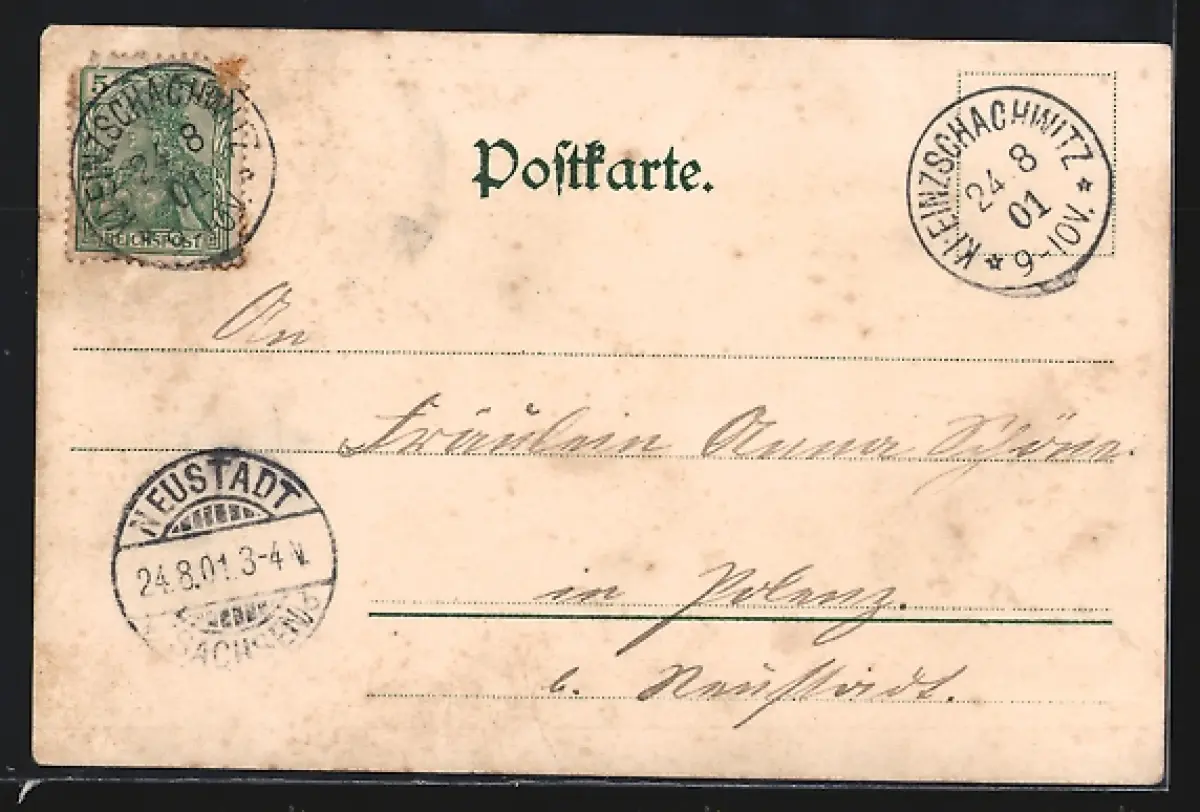 5
REICHSPOST
KLEINZSCHACHWITZ
24 8
01
9-10V.
Postkarte.
KLEINZSCHACHWITZ
24 8
01
9-10V.
An
Fräulein Anna Schöne.
NEUSTADT
24.8.01.3-4 N.
SACHSEN
in Polenz.
b. Neustadt.